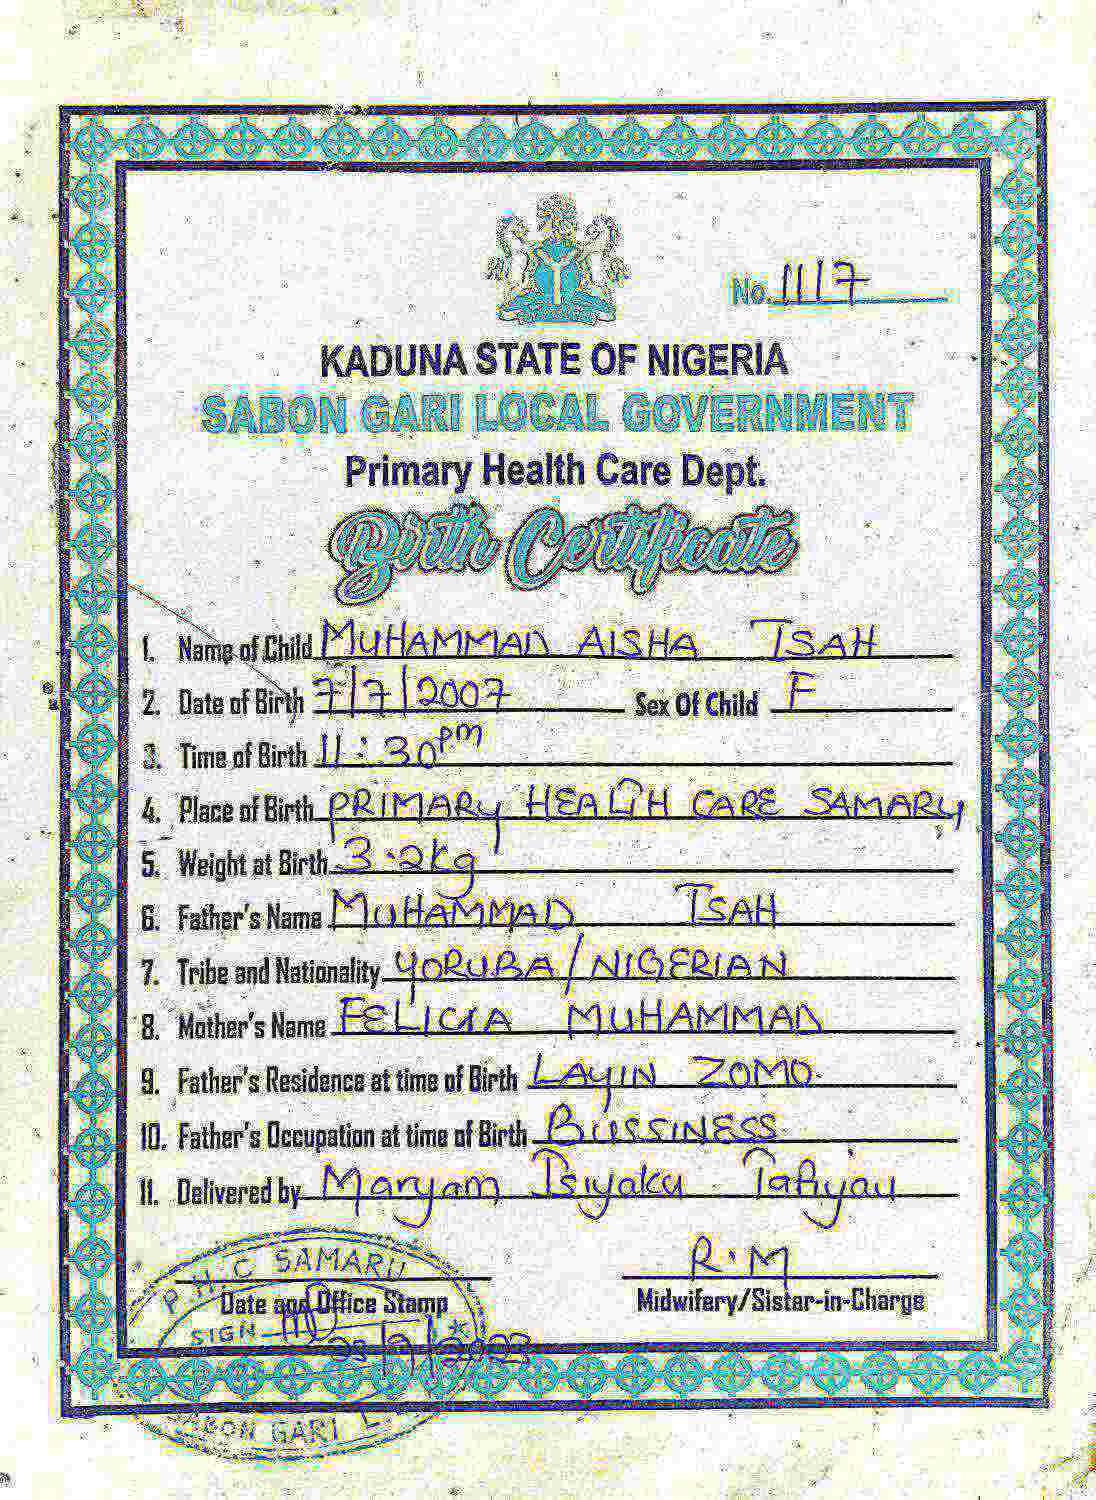 No. 1117
KADUNA STATE OF NIGERIA
SABON GARI LOCAL GOVERNMENT
Primary Health Care Dept.
Birth Certificate
1. Name of Child MUHAMMAD AISHA ISAH
2. Date of Birth 7/7/2007 Sex Of Child F
3. Time of Birth 11:30pm
4. Place of Birth PRIMARY HEALTH CARE SAMARU
5. Weight at Birth 3.2kg
6. Father's Name MUHAMMAD ISAH
7. Tribe and Nationality YORUBA/NIGERIAN
8. Mother's Name FELICIA MUHAMMAD
9. Father's Residence at time of Birth LAYIN ZOMO.
10. Father's Occupation at time of Birth BUSSINESS
11. Delivered by Maryam Isiyaku Tafiyau
P.H.C SAMARU
R.M
Date and Office Stamp Midwifery/Sister-in-Charge
SIGN
SABON GARI L.